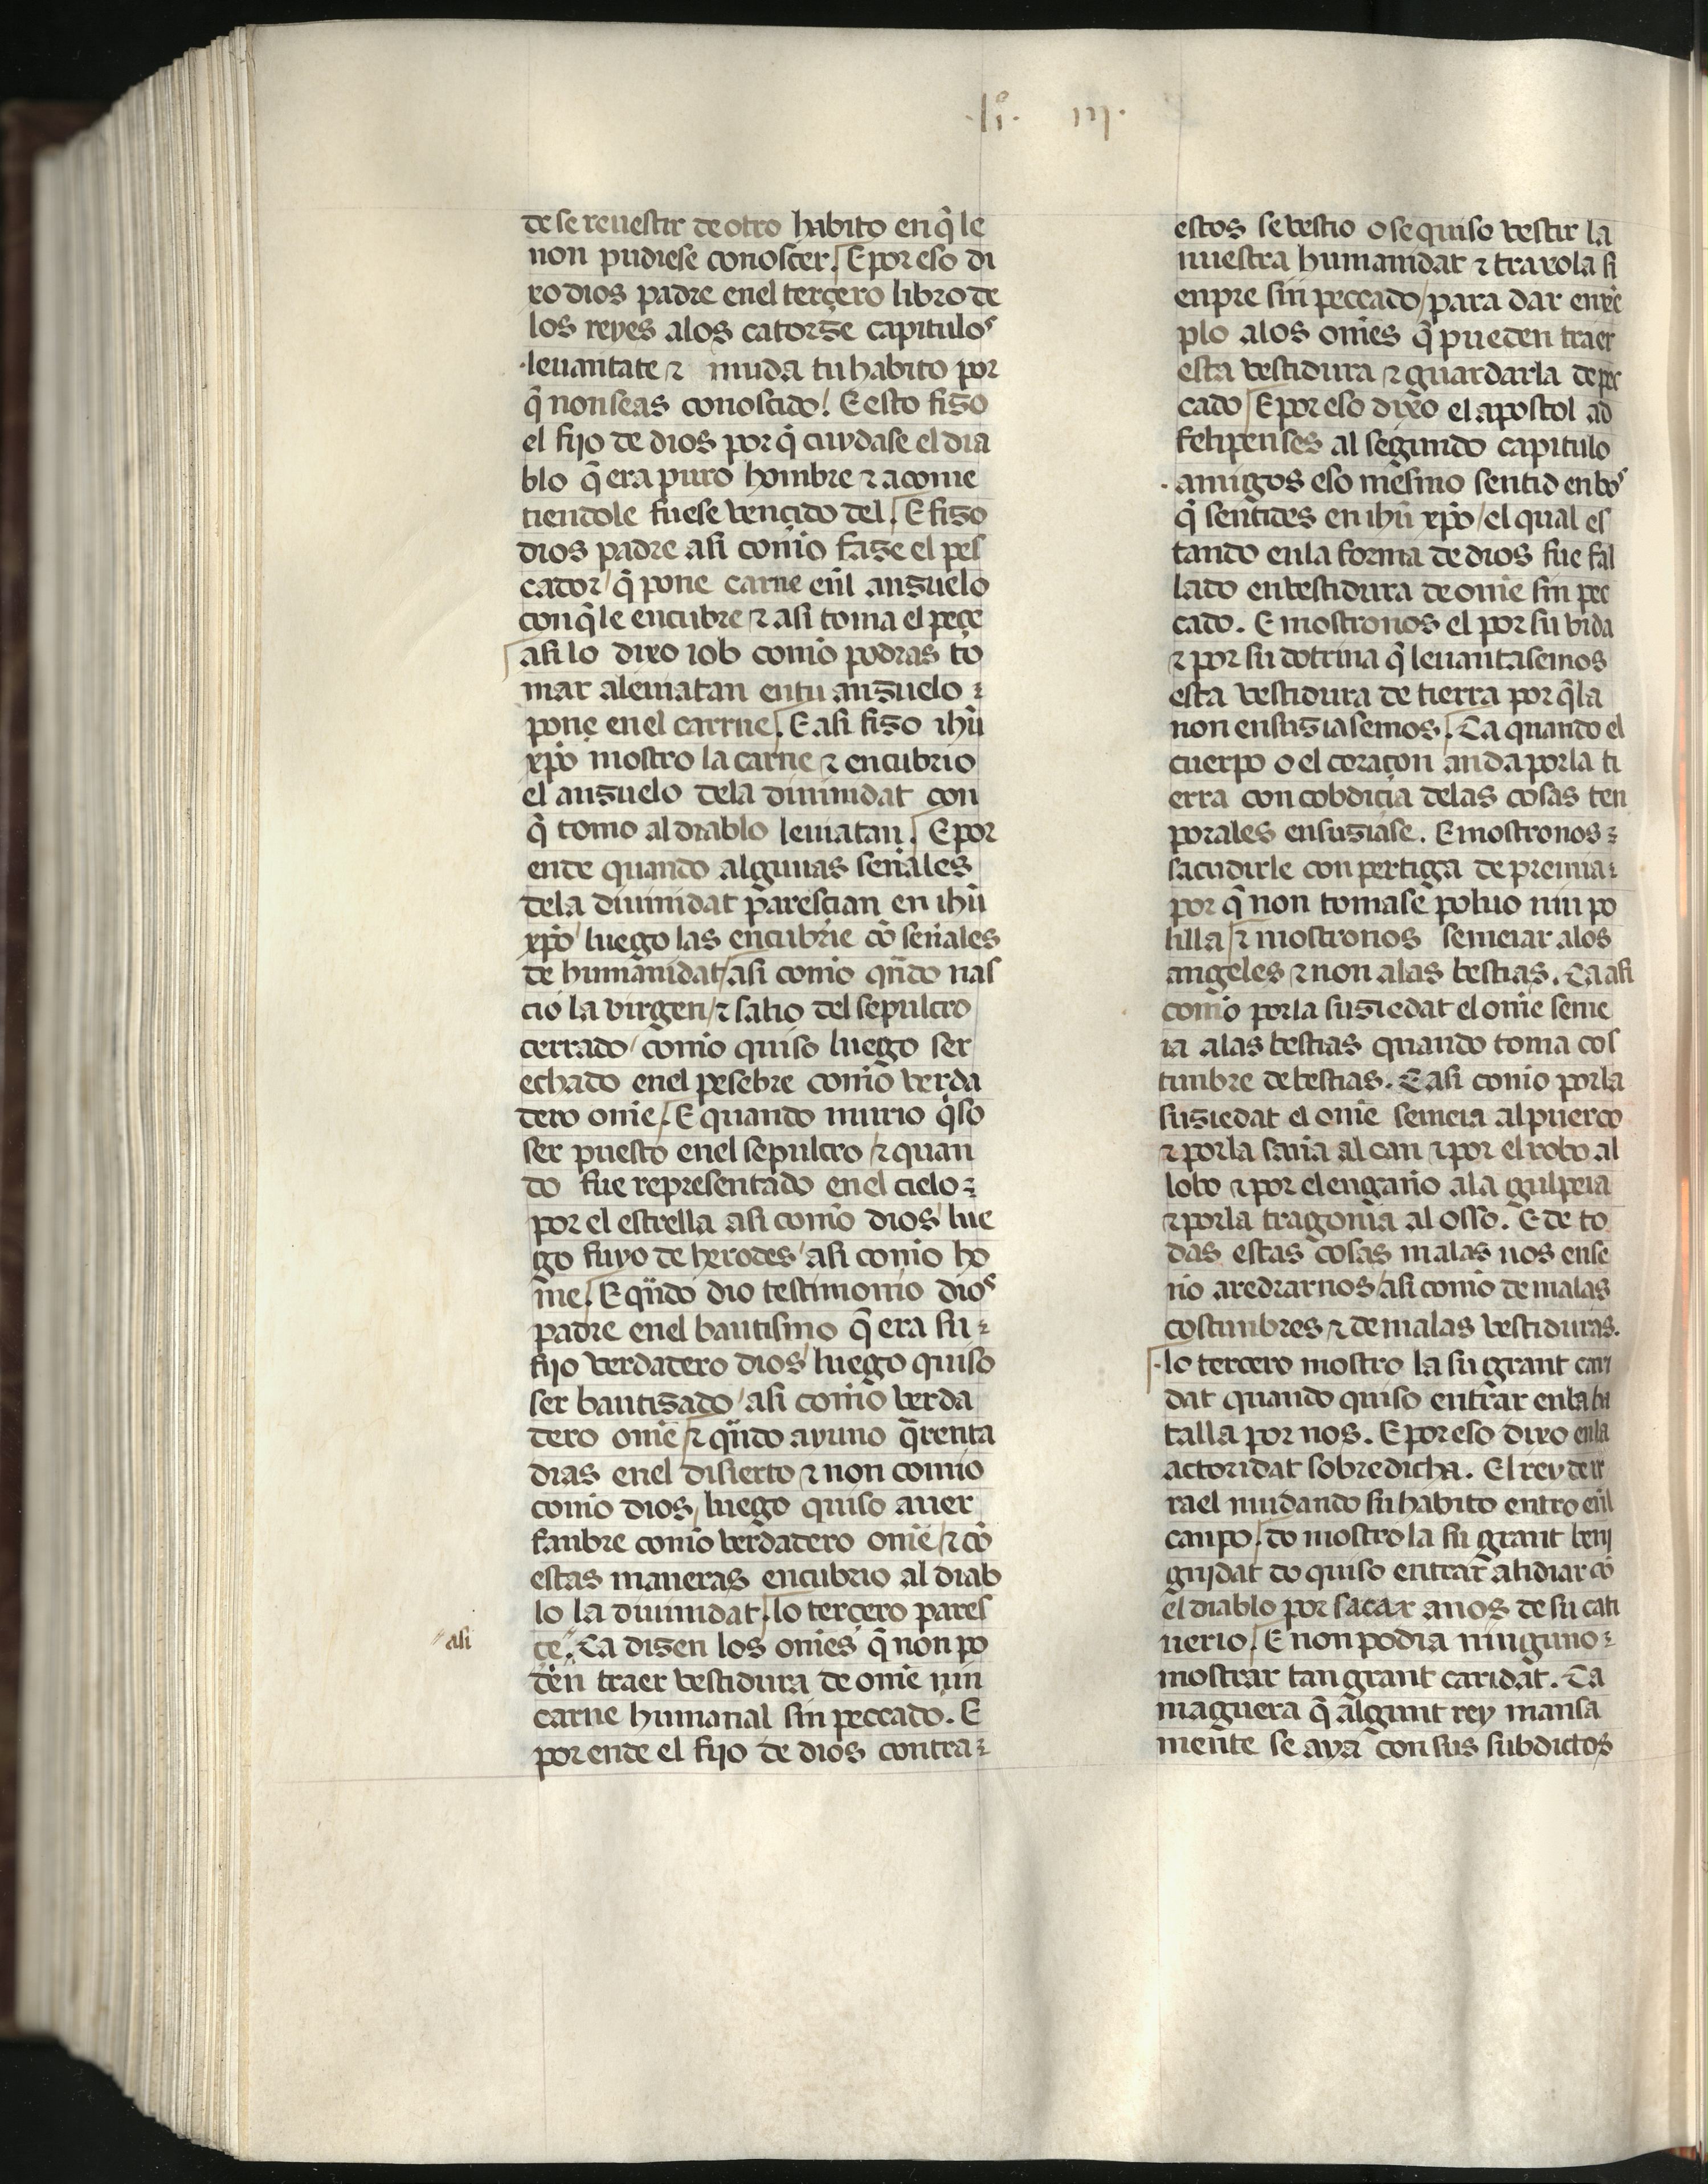 .li. iij.
de se reuestir de otro habito en q̃ le
non pudiese conoscer. E por eso di
xo dios padre enel terçero libro de
los reyes alos catorze capitulos
leuantate ⁊ muda tu habito por
q̃ non seas conoscido. E esto fizo
el fijo de dios por q̃ cuydase el dia
blo q̃ era puro hombre ⁊ acome
tiendole fuese vençido del. E fizo
dios padre asi com̃o faze el pes
cador / q̃ pone carne eñl anzuelo
con q̃ le encubre ⁊ asi toma el peçe
asi lo dixo iob com̃o podras to
mar aleuiatan en tu anzuelo ⁊
pone en el carrne. E asi fizo ihũ
xp̃o mostro la carne ⁊ encubrio
el anzuelo dela diuinidat con
q̃ tomo al diablo leuiatan. E por
ende quando algunas señales
dela diuinidat paresçian en ihũ
xp̃o / luego las encubrie cõ señales
de humanidat / asi com̃o qñdo nas
cio la virgen / ⁊ salio del sepulcro
cerrado / com̃o quiso luego ser
echado enel pesebre com̃o verda
dero om̃e. E quando murio q̃so
ser puesto enel sepulcro / ⁊ quan
do fue representado en el cielo ⁊
por el estrella asi com̃o dios / lue
go fuyo de herodes / asi com̃o ho
m̃e. E qũdo dio testimonio dios
padre enel bautismo q̃ era su ⁊
fijo verdadero dios / luego quiso
ser bautizado / asi com̃o verda
dero om̃e / ⁊ qũdo ayuno q̃renta
dias enel disierto ⁊ non comio
com̃o dios / luego quiso auer
fanbre com̃o verdadero om̃e / ⁊ cõ
estas maneras encubrio al diab
lo la diuinidat. lo terçero pares
asi
çe. Ca dizen los om̃es q̃ non po
den traer vestidura de om̃e nin
carne humanal sin peccado. E
por ende el fijo de dios contra ⁊
estos se vestio o se quiso vestir la
nuestra humanidat ⁊ traxola si
enpre sin peccado / para dar enxẽ
plo alos om̃es q̃ pueden traer
esta vestidura ⁊ guardarla de pec
cado / E por eso dixo el apostol ad
felipenses al segundo capitulo
. amigos eso mesmo sentid en vos
q̃ sentides en ihũ xp̃o / el qual es
tando enla forma de dios fue fal
lado en vestidura de om̃e sin pec
cado. E mostronos el por su vida
⁊ por su dotrina q̃ leuantasemos
esta vestidura de tierra por q̃ la
non ensuziasemos. Ca quando el
cuerpo o el coraçon anda por la ti
erra con cobdiçia delas cosas ten
porales ensuziase. E mostronos ⁊
sacudirle con pertiga de premia ⁊
por q̃ non tomase poluo nin po
lilla / ⁊ mostronos semeiar alos
angeles ⁊ non alas bestias. Ca asi
com̃o por la suziedat el om̃e seme
ia alas bestias quando toma cos
tunbre de bestias. E asi com̃o por la
suziedat el om̃e semeia al puerco
⁊ por la saña al can ⁊ por el robo al
lobo ⁊ por el engaño ala gulpeia
⁊ por la tragonia al osso. E de to
das estas cosas malas nos ense
ño aredrarnos / asi com̃o de malas
costunbres ⁊ de malas vestiduras.
.lo tercero mostro la su grant cari
dat quando quiso entrar en la ba
talla por nos. E por eso dixo en la
actoridat sobredicha. El rey de isr
rael mudando su habito entro eñl
canpo. do mostro la su grant beni
gnidat do quiso entrar a lidiar cõ
el diablo por sacar anos de su cati
uerio. E non podia ninguno ⁊
mostrar tan grant caridat. Ca
maguera q̃ algunt rey mansa
mente se aya con sus subdictos